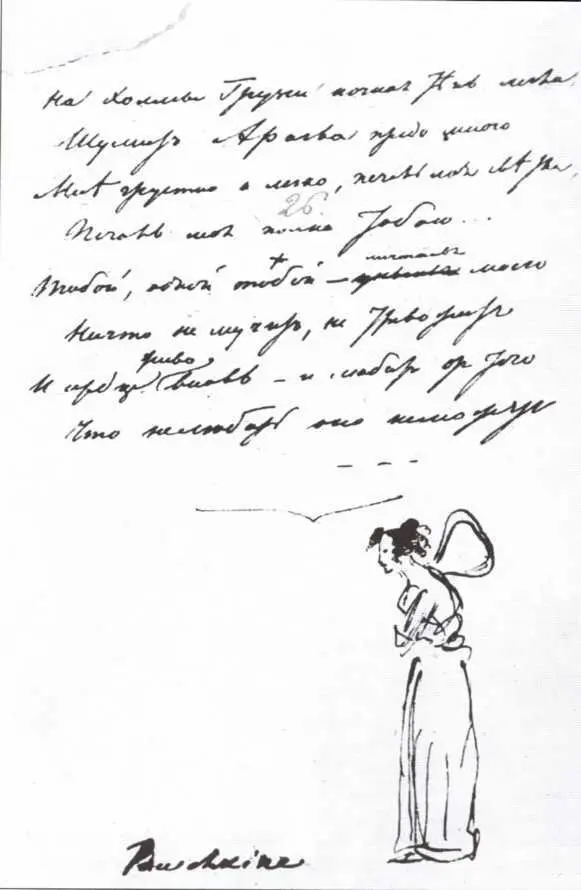 На холмы Грузіи ночная тѣнь легла
Шумитъ Арагва предо мною
Мнѣ грустно и легко, печаль моя свѣтла,
26
Печаль моя полна тобою...
Тобой, одной тобой — унынья моего
Ничто не мучитъ, не тревожитъ
живо
И сердце вновь — и любитъ отъ того
Что не любить оно не можетъ
Pouchkine